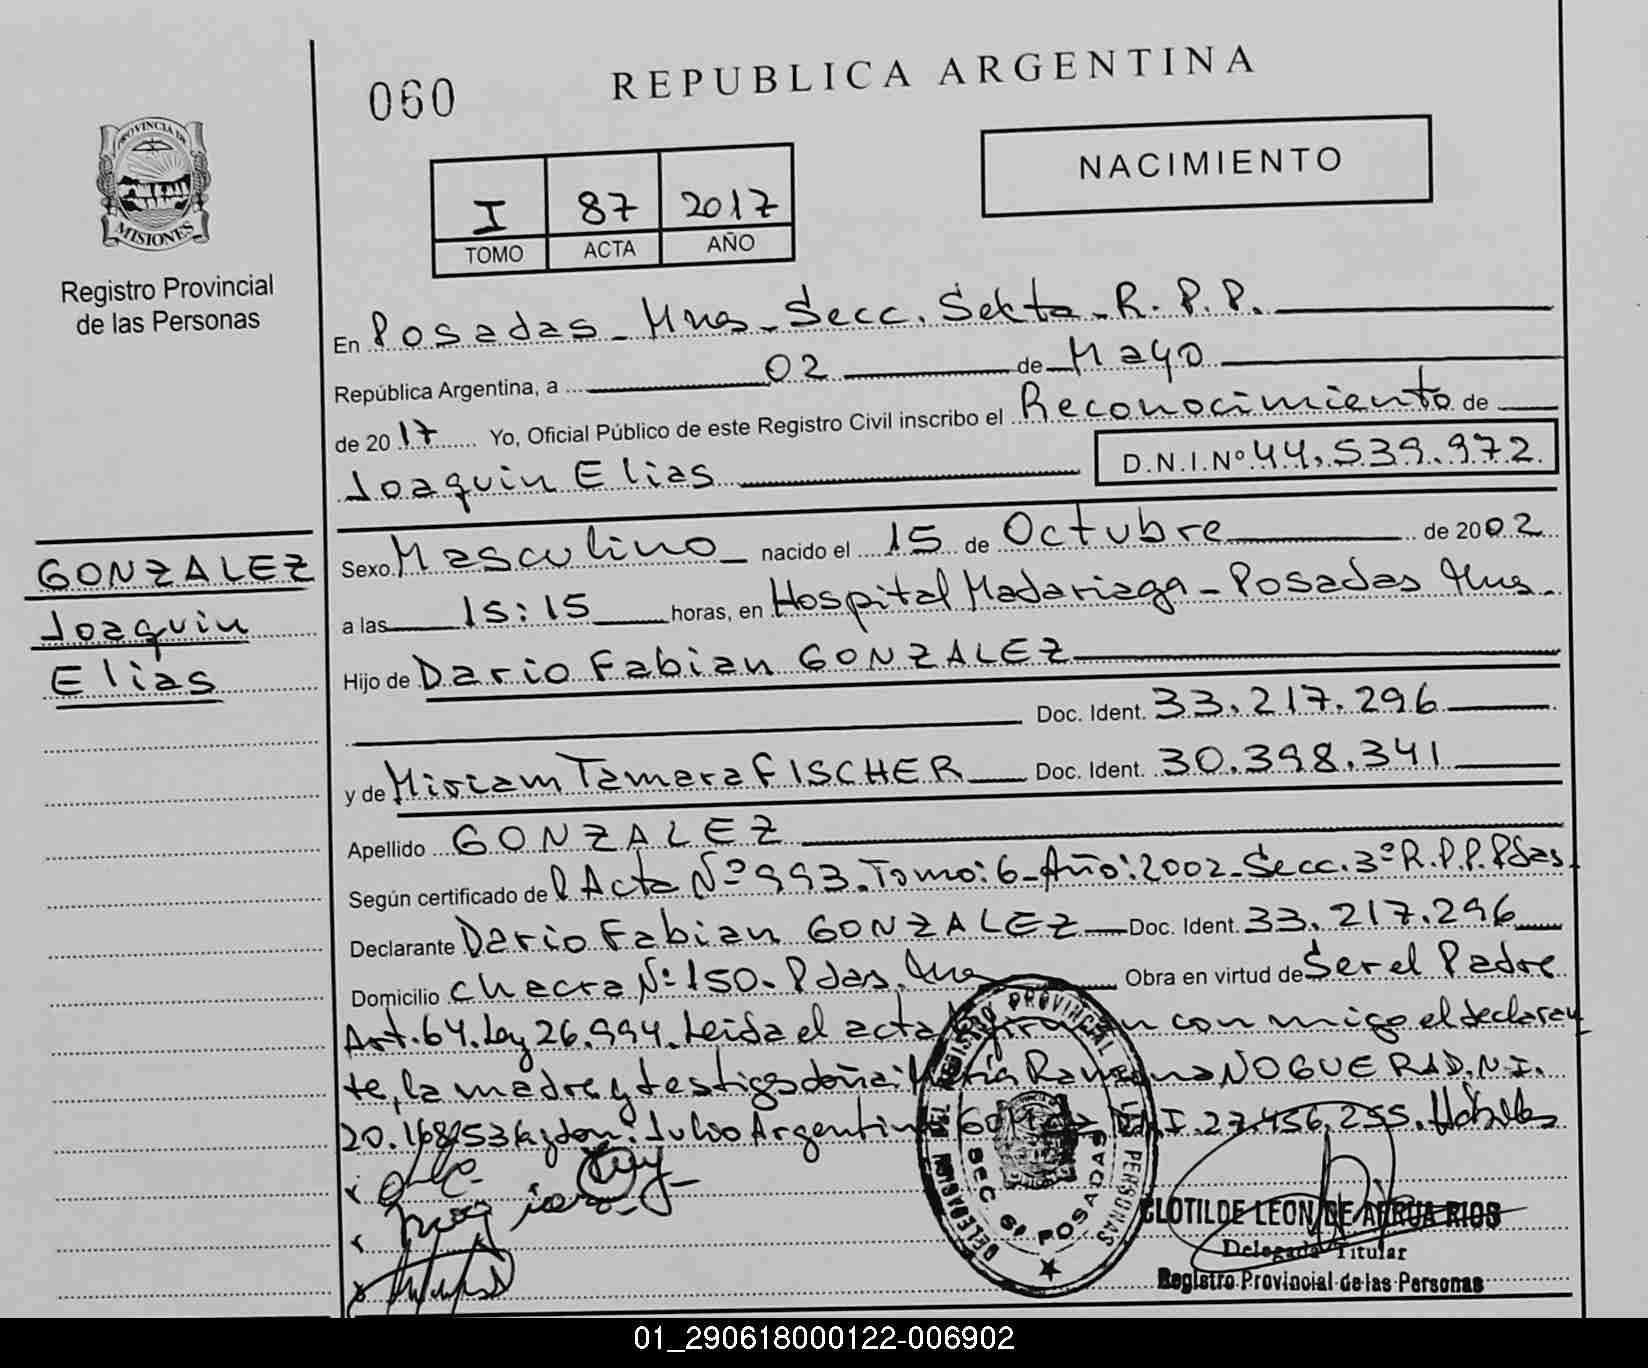 060
REPUBLICA ARGENTINA
PROVINCIA DE
MISIONES
Registro Provincial
de las Personas
NACIMIENTO
I 87 2017
TOMO ACTA AÑO
En Posadas - Mnes - Secc. Sexta - R.P.P.
República Argentina, a 02 de Mayo
de 2017 Yo, Oficial Público de este Registro Civil inscribo el Reconocimiento de
Joaquin Elias D.N.I.Nº 44.539.972
GONZALEZ
Joaquin
Elias
Sexo Masculino nacido el 15 de Octubre de 2002
a las 15:15 horas, en Hospital Madariaga - Posadas Mnes.
Hijo de Dario Fabian GONZALEZ
Doc. Ident. 33.217.296
y de Miriam Tamara FISCHER Doc. Ident. 30.398.341
Apellido GONZALEZ
Según certificado del Acta Nº 993. Tomo: 6 - Año: 2002 - Secc. 3º R.P.P. Pdas.
Declarante Dario Fabian GONZALEZ Doc. Ident. 33.217.296
Domicilio Chacra Nº 150. Pdas. Mnes Obra en virtud de Ser el Padre
Art. 64. Ley 26.994. Leida el acta firman con migo el declaran
te, la madre y testigos doña: María Ramona NOGUERA D.N.I.
20. y don: Julio Argentino D.N.I. 27.456.255. Hábiles
DELEGACION DEL REGISTRO PROVINCIAL DE LAS PERSONAS
SEC 6º POSADAS
CLOTILDE LEON DE ARRUA RIOS
Delegada Titular
Registro Provincial de las Personas
01_290618000122-006902